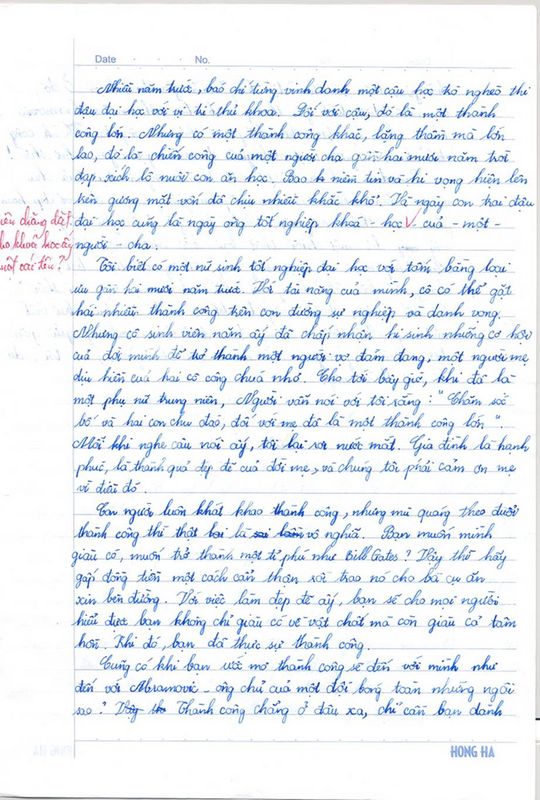 Date No.
Nhiều năm trước, báo chí từng vinh danh một cậu học trò nghèo thi
đậu đại học với vị trí thủ khoa. Đối với cậu, đó là một thành
công lớn. Nhưng có một thành công khác, lặng thầm mà lớn
lao, đó là chiến công của một người cha gần hai mươi năm trời
đạp xích lô nuôi con ăn học. Bao niềm tin và hi vọng hiện lên
trên gương mặt vốn đã chịu nhiều khắc khổ. Và ngày con trai đậu
đại học cũng là ngày ông tốt nghiệp khoá - học - của - một -
người - cha.
chăng đặt
cho khoá học ấy
một cái tên?
Tôi biết có một nữ sinh tốt nghiệp đại học với tấm bằng loại
ưu gần hai mươi năm trước. Với tài năng của mình, cô có thể gặt
hái nhiều thành công trên con đường sự nghiệp và danh vọng.
Nhưng cô sinh viên năm ấy đã chấp nhận hi sinh những cơ hội
của đời mình để trở thành một người vợ đảm đang, một người mẹ
dịu hiền của hai cô công chúa nhỏ. Cho tới bây giờ, khi đã là
một phụ nữ trung niên, Người vẫn nói với tôi rằng: "Chăm sóc
bố và hai con chu đáo, đối với mẹ đã là một thành công lớn".
Mỗi khi nghe câu nói ấy, tôi lại rơi nước mắt. Gia đình là hạnh
phúc, là thành quả đẹp đẽ của đời mẹ, và chúng tôi phải cảm ơn mẹ
vì điều đó.
Con người luôn khát khao thành công, nhưng mù quáng theo đuổi
thành công thì thật là vô nghĩa. Bạn muốn mình
giàu có, muốn trở thành một tỉ phú như Bill Gates? Vậy thì hãy
gấp đồng tiền một cách cẩn thận rồi trao nó cho bà cụ ăn
xin bên đường. Với việc làm đẹp đẽ ấy, bạn sẽ cho mọi người
hiểu được bạn không chỉ giàu có về vật chất mà còn giàu có tâm
hồn. Khi đó, bạn đã thực sự thành công.
Cũng có khi bạn ước mơ thành công sẽ đến với mình như
đến với Abramovic - ông chủ của một đội bóng toàn những ngôi
sao? Thành công chẳng ở đâu xa, chỉ cần bạn dành
HONG HA